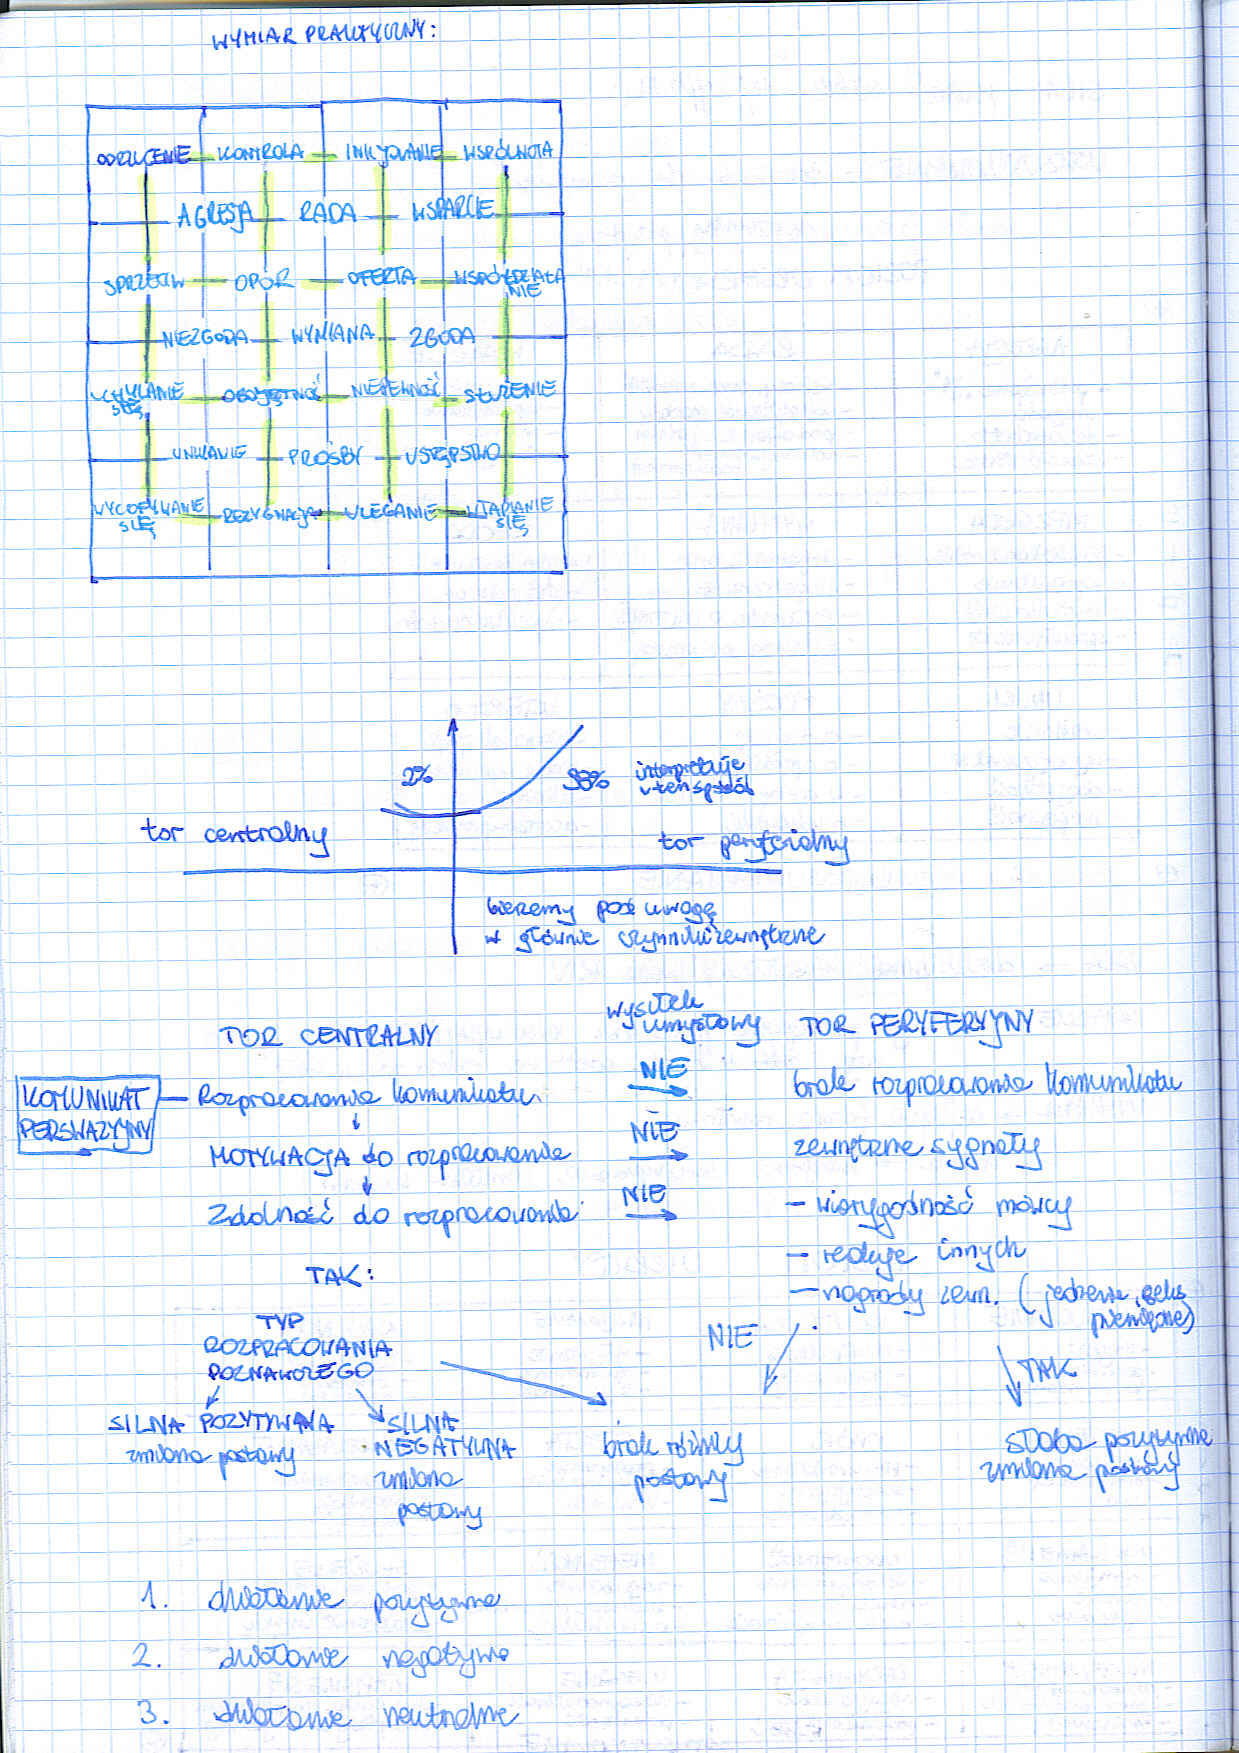 WYMIAR PRAKTYCZNY:
ODRZUCENIE KONTROLA INICJOWANIE WSPÓLNOTA
AGRESJA RADA WSPARCIE
SPRZECIW OPÓR OFERTA WSPÓŁDZIAŁA
NIE
NIEZGODA WYMIANA ZGODA
UCHYLANIE OBOJĘTNOŚĆ NIEPEWNOŚĆ SŁUŻENIE
SIĘ
UNIKANIE PROŚBY USTĘPSTWO
WYCOFYWANIE REZYGNACJA ULEGANIE WTAPIANIE
SIĘ SIĘ
2% 98% interpretuje
w ten sposób
tor centralny tor peryferialny
bierzemy pod uwagę
w głównie czynniki zewnętrzne
wysiłek
umysłowy
TOR CENTRALNY TOR PERYFERYJNY
KOMUNIKAT
PERSWAZYJNY
Rozpracowanie komunikatu NIE brak rozpracowania komunikatu
MOTYWACJA do rozpracowania NIE zewnętrzne sygnały
Zdolność do rozpracowania NIE - wiarygodność mówcy
- reakcje innych
TAK: - nagrody zewn. (jedzenie, seks
pieniądze)
TYP
ROZPRACOWANIA
POZNAWCZEGO
NIE TAK
SILNA POZYTYWNA
zmiana postawy
SILNA
NEGATYWNA
zmiana
postawy
brak różnicy
postawy
słaba pozytywna
zmiana postawy
1. działanie pozytywne
2. działanie negatywne
3. działanie neutralne